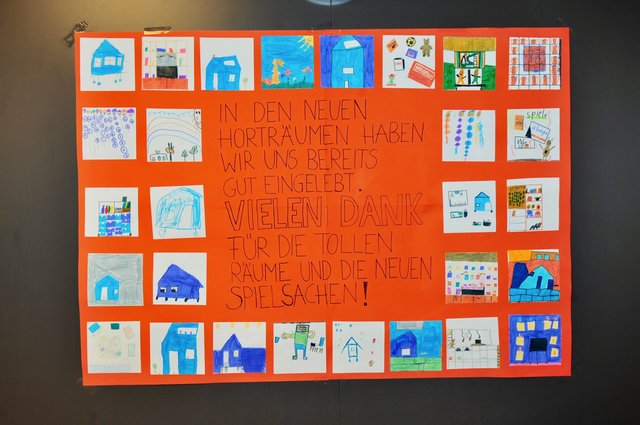 IN DEN NEUEN
HORTRÄUMEN HABEN
WIR UNS BEREITS
GUT EINGELEBT.
VIELEN DANK
FÜR DIE TOLLEN
RÄUME UND DIE NEUEN
SPIELSACHEN!
spiele